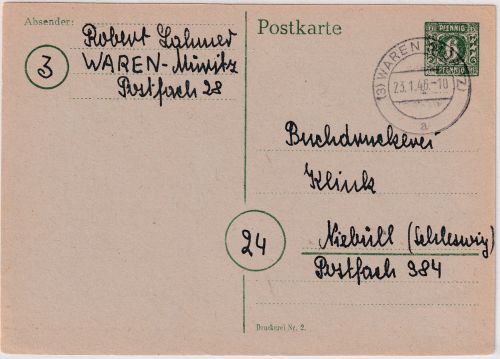 Absender:
Robert Lahmer
3
WAREN-Müritz
Postfach 28
Postkarte
PFENNIG
6
PFENNIG
(3) WAREN
23.1.46.-10
a
Buchdruckerei
Klink
24
Niebüll (Schleswig)
Postfach 384
Druckerei Nr. 2.